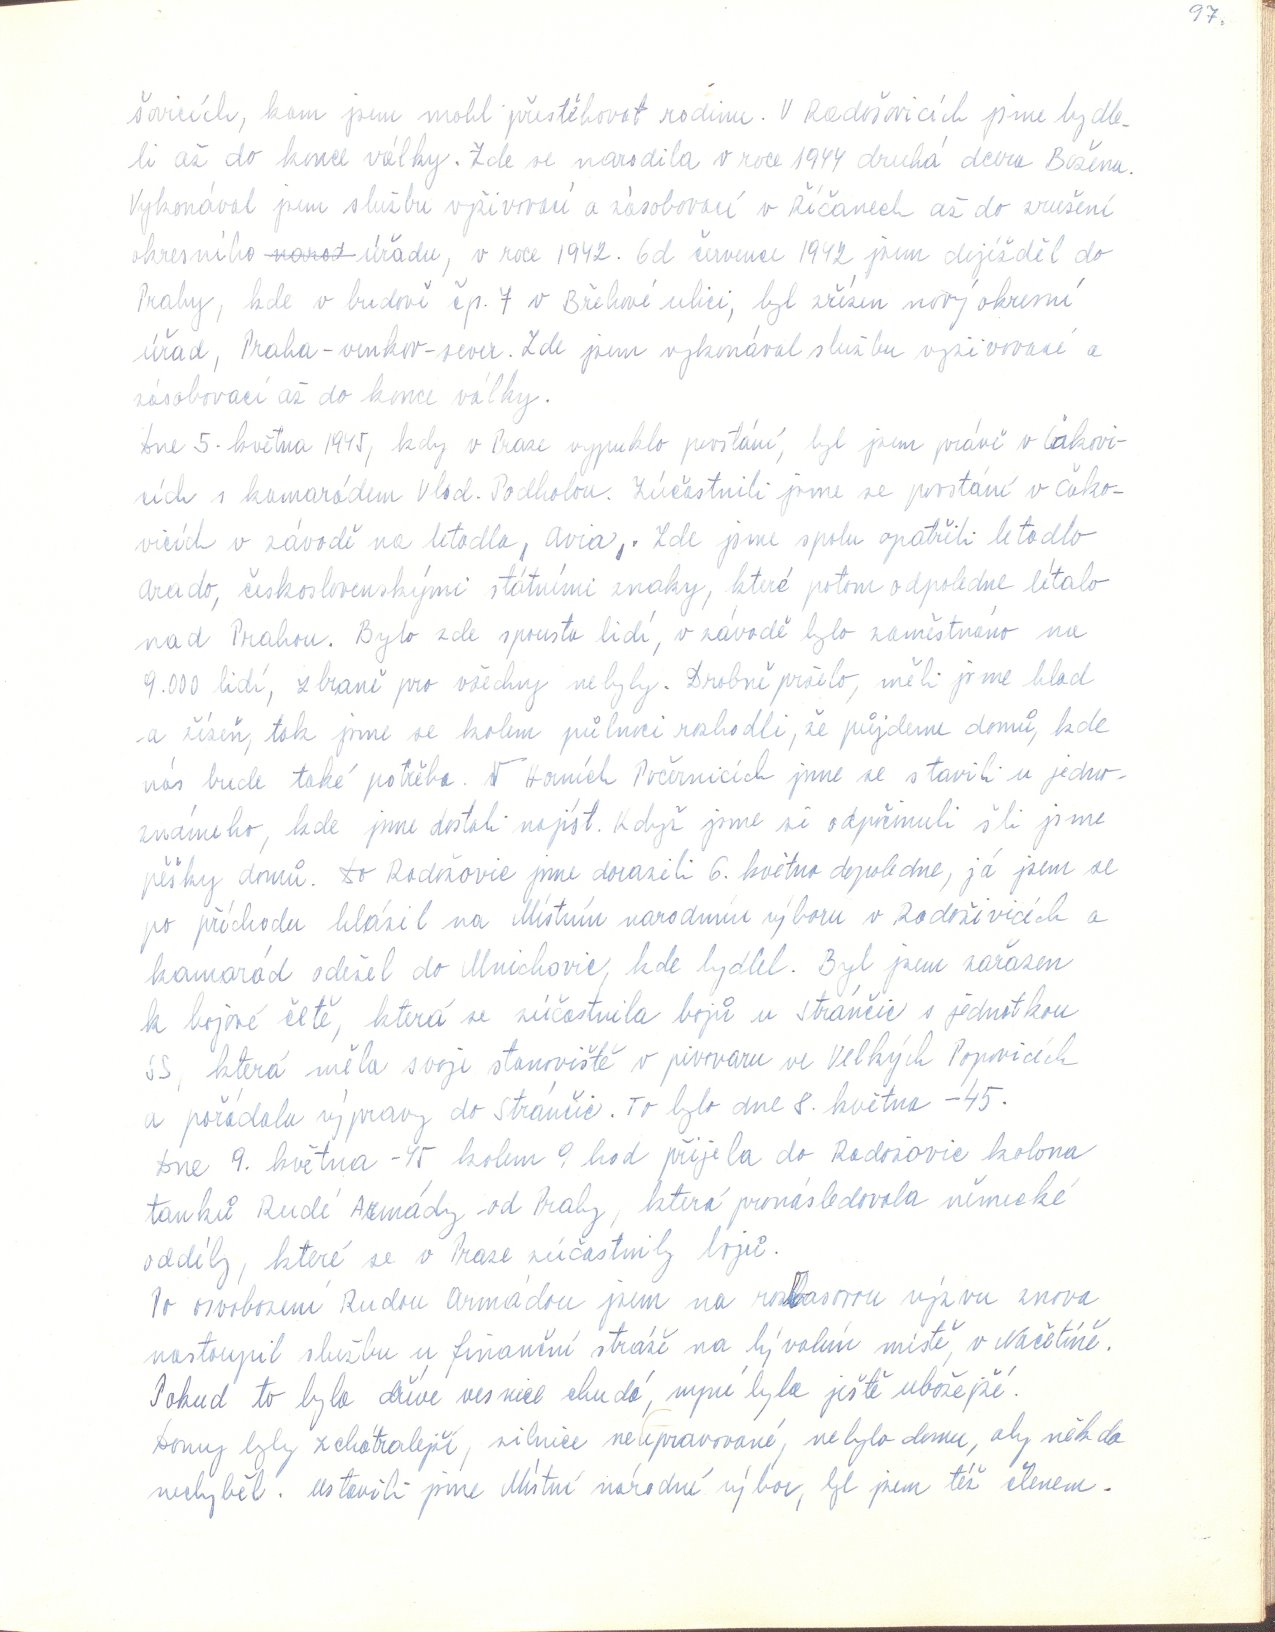 97.
šovicích, kam jsem mohl přestěhovat rodinu. V Radošovicích jsme bydle-
li až do konce války. Zde se narodila v roce 1944 druhá dcera Božena.
Vykonával jsem službu vyživovací a zásobovací v Říčanech až do zrušení
okresního narod úřadu, v roce 1942. Od července 1942 jsem dojížděl do
Prahy, kde v budově čp. 7 v Břehové ulici, byl zřízen nový okresní
úřad, Praha-venkov-sever. Zde jsem vykonával službu vyživovací a
zásobovací až do konce války.
Dne 5. května 1945, kdy v Praze vypuklo povstání, byl jsem právě v Čakovi-
cích s kamarádem Vlad. Podholou. Zúčastnili jsme se povstání v Čako-
vicích v závodě na letadla, Avia,. Zde jsme spolu spatřili letadlo
Arado, československými státními znaky, které potom odpoledne létalo
nad Prahou. Bylo zde spousta lidí, v závodě bylo zaměstnáno na
9.000 lidí, zbraně pro všechny nebyly. Drobně pršelo, měli jsme hlad
a žízeň, tak jsme se kolem půlnoci rozhodli, že půjdeme domů, kde
nás bude také potřeba. V Horních Počernicích jsme se stavili u jedno-
známeho, kde jsme dostali najíst. Když jsme si odpočinuli šli jsme
pěšky domů. Do Radošovic jsme dorazili 6. května dopoledne, já jsem se
po příchodu hlásil na Místním narodním výboru v Radošivicích a
kamarád odešel do Mnichovic, kde bydlel. Byl jsem zařazen
k bojové četě, která se zúčastnila bojů u Strančic s jednotkou
SS, která měla svoje stanoviště v pivovaru ve Velkých Popovicích
a pořádala výpravy do Strančic. To bylo dne 8. května -45.
Dne 9. května -45 kolem 9 hod přijela do Radošovic kolona
tanků Rudé Armády od Prahy, která pronásledovala německé
oddíly, které se v Praze zúčastnily bojů.
Po osvobození Rudou Armádou jsem na rozhlasovou výzvu znova
nastoupil službu u finanční stráže na bývalém místě, v Načetíně.
Pokud to byla dříve vesnice chudá, nyní byla ještě ubožejší.
Domy byly zchátralejší, silnice neupravované, nebylo domu, aby někdo
nechyběl. Ustavili jsme Místní národní výbor, byl jsem též členem.